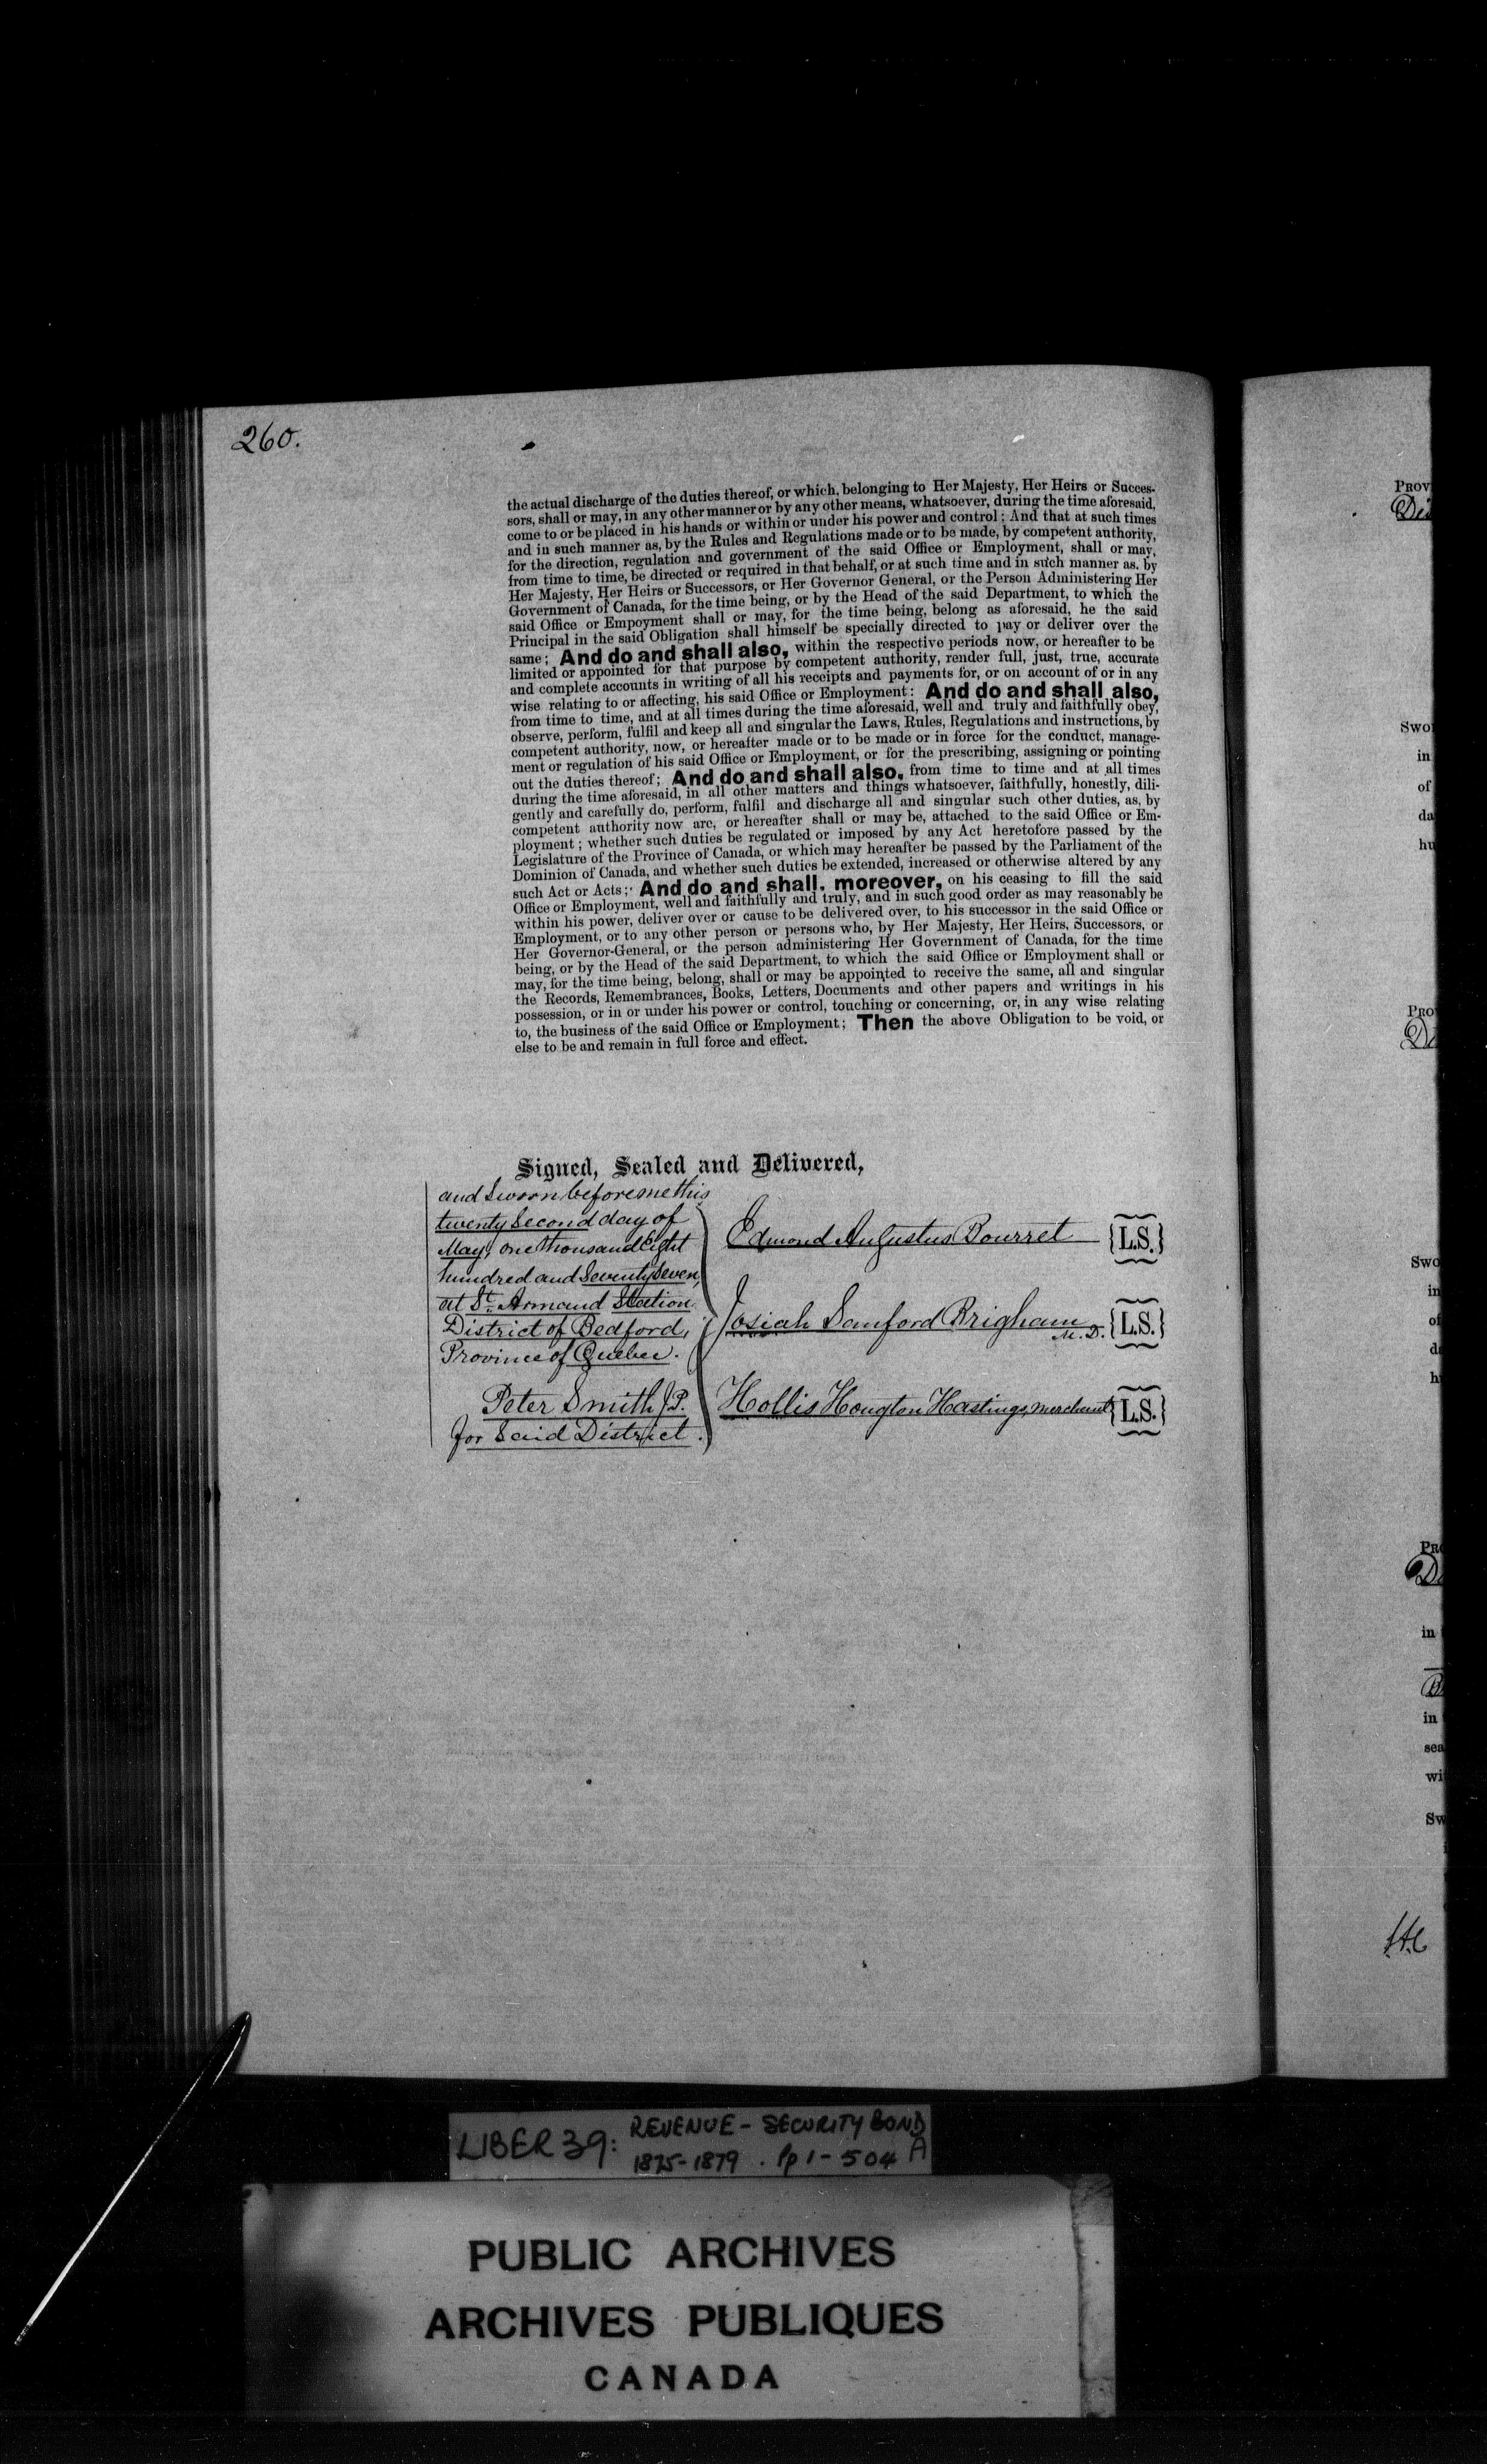 260.
the actual discharge of the duties thereof, or which, belonging to Her Majesty, Her Heirs or Succes-
sors, shall or may, in any other manner or by any other means, whatsoever, during the time aforesaid,
come to or be placed in his hands or within or under his power and control; And that at such times
and in such manner as, by the Rules and Regulations made or to be made, by competent authority,
for the direction, regulation and government of the said Office or Employment, shall or may,
from time to time, be directed or required in that behalf, or at such time and in such manner as, by
Her Majesty, Her Heirs or Successors, or Her Governor General, or the Person Administering Her
Government of Canada, for the time being, or by the Head of the said Department, to which the
said Office or Empoyment shall or may, for the time being, belong as aforesaid, he the said
Principal in the said Obligation shall himself be specially directed to pay or deliver over the
same; And do and shall also, within the respective periods now, or hereafter to be
limited or appointed for that purpose by competent authority, render full, just, true, accurate
and complete accounts in writing of all his receipts and payments for, or on account of or in any
wise relating to or affecting, his said Office or Employment: And do and shall also,
from time to time, and at all times during the time aforesaid, well and truly and faithfully obey,
observe, perform, fulfil and keep all and singular the Laws, Rules, Regulations and instructions, by
competent authority, now, or hereafter made or to be made or in force for the conduct, manage-
ment or regulation of his said Office or Employment, or for the prescribing, assigning or pointing
out the duties thereof; And do and shall also, from time to time and at all times
during the time aforesaid, in all other matters and things whatsoever, faithfully, honestly, dili-
gently and carefully do, perform, fulfil and discharge all and singular such other duties, as, by
competent authority now are, or hereafter shall or may be, attached to the said Office or Em-
ployment; whether such duties be regulated or imposed by any Act heretofore passed by the
Legislature of the Province of Canada, or which may hereafter be passed by the Parliament of the
Dominion of Canada, and whether such duties be extended, increased or otherwise altered by any
such Act or Acts; And do and shall, moreover, on his ceasing to fill the said
Office or Employment, well and faithfully and truly, and in such good order as may reasonably be
within his power, deliver over or cause to be delivered over, to his successor in the said Office or
Employment, or to any other person or persons who, by Her Majesty, Her Heirs, Successors, or
Her Governor-General, or the person administering Her Government of Canada, for the time
being, or by the Head of the said Department, to which the said Office or Employment shall or
may, for the time being, belong, shall or may be appointed to receive the same, all and singular
the Records, Remembrances, Books, Letters, Documents and other papers and writings in his
possession, or in or under his power or control, touching or concerning, or, in any wise relating
to, the business of the said Office or Employment; Then the above Obligation to be void, or
else to be and remain in full force and effect.
Signed, Sealed and Delivered,
and Sworn before me this
twenty Second day of
May, one thousand Eight
hundred and Seventy Seven,
at St. Armand Station
District of Bedford,
Province of Quebec.
Peter Smith J.P.
for Said District.
Edmond Augustus Bourret {L.S.}
Josiah Sanford Brigham M.D. {L.S.}
Hollis Hougton Hastings, merchant {L.S.}
PROV
Swo
in
of
da
hu
PRO
Swo
in
of
d
h
PR
in
in
sea
wi
Sw
LIBER 39: REVENUE - SECURITY BOND
1875-1879 . Pp 1 - 504 A
PUBLIC ARCHIVES
ARCHIVES PUBLIQUES
CANADA